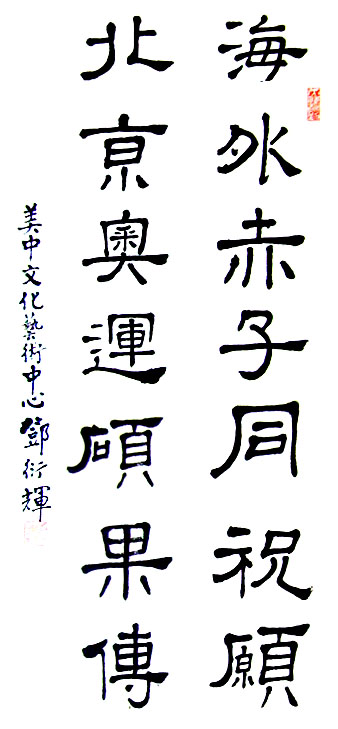 海外赤子同祝願
北京奧運碩果傳
美中文化藝術中心鄧衍輝